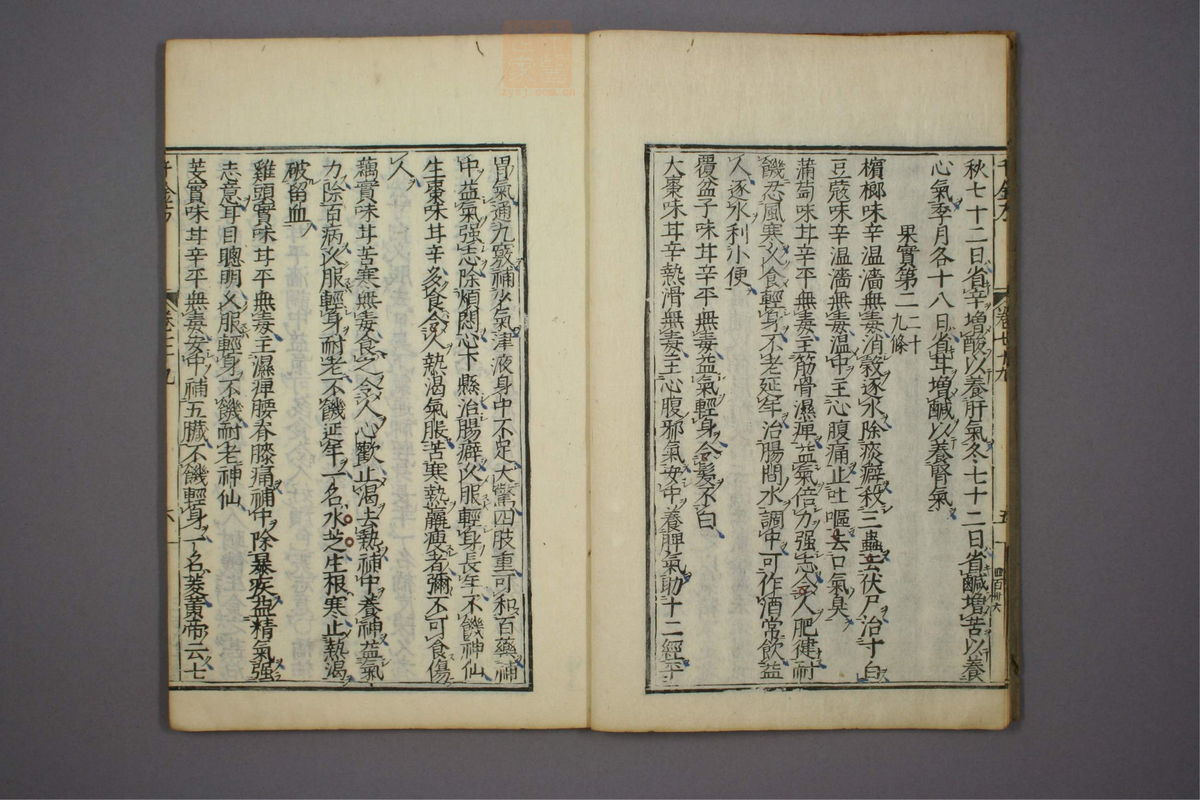 秋七十二日省辛增酸以養肝氣冬七十二日省鹹增苦以養
心氣季月各十八日省甘增鹹以養腎氣
果實第二二十九條
檳榔味辛溫濇無毒消穀逐水除痰癖殺三蟲去伏尸治寸白
豆蔻味辛溫濇無毒溫中主心腹痛止吐嘔去口氣臭
蒲萄味甘辛平無毒主筋骨濕痺益氣倍力强志令人肥健耐
饑忍風寒久食輕身不老延年治腸間水調中可作酒常飲益
人逐水利小便
覆盆子味甘辛平無毒益氣輕身令髮不白
大棗味甘辛熱滑無毒主心腹邪氣安中養脾氣助十二經平
胃氣通九竅補少氣津液身中不足大驚四肢重可和百藥補
中益氣强志除煩悶心下懸治腸癖久服輕身長年不饑神仙
生棗味甘辛多食令人熱渴氣脹苦寒熱羸瘦者彌不可食傷
人
藕實味甘苦寒無毒食之令人心歡止渴去熱補中養神益氣
力除百病久服輕身耐老不饑延年一名水芝生根寒止熱渴
破留血
雞頭實味甘平無毒主濕痺腰脊膝痛補中除暴疾益精氣强
志意耳目聰明久服輕身不饑耐老神仙
芰實味甘辛平無毒安中補五臟不饑輕身一名菱黃帝云七